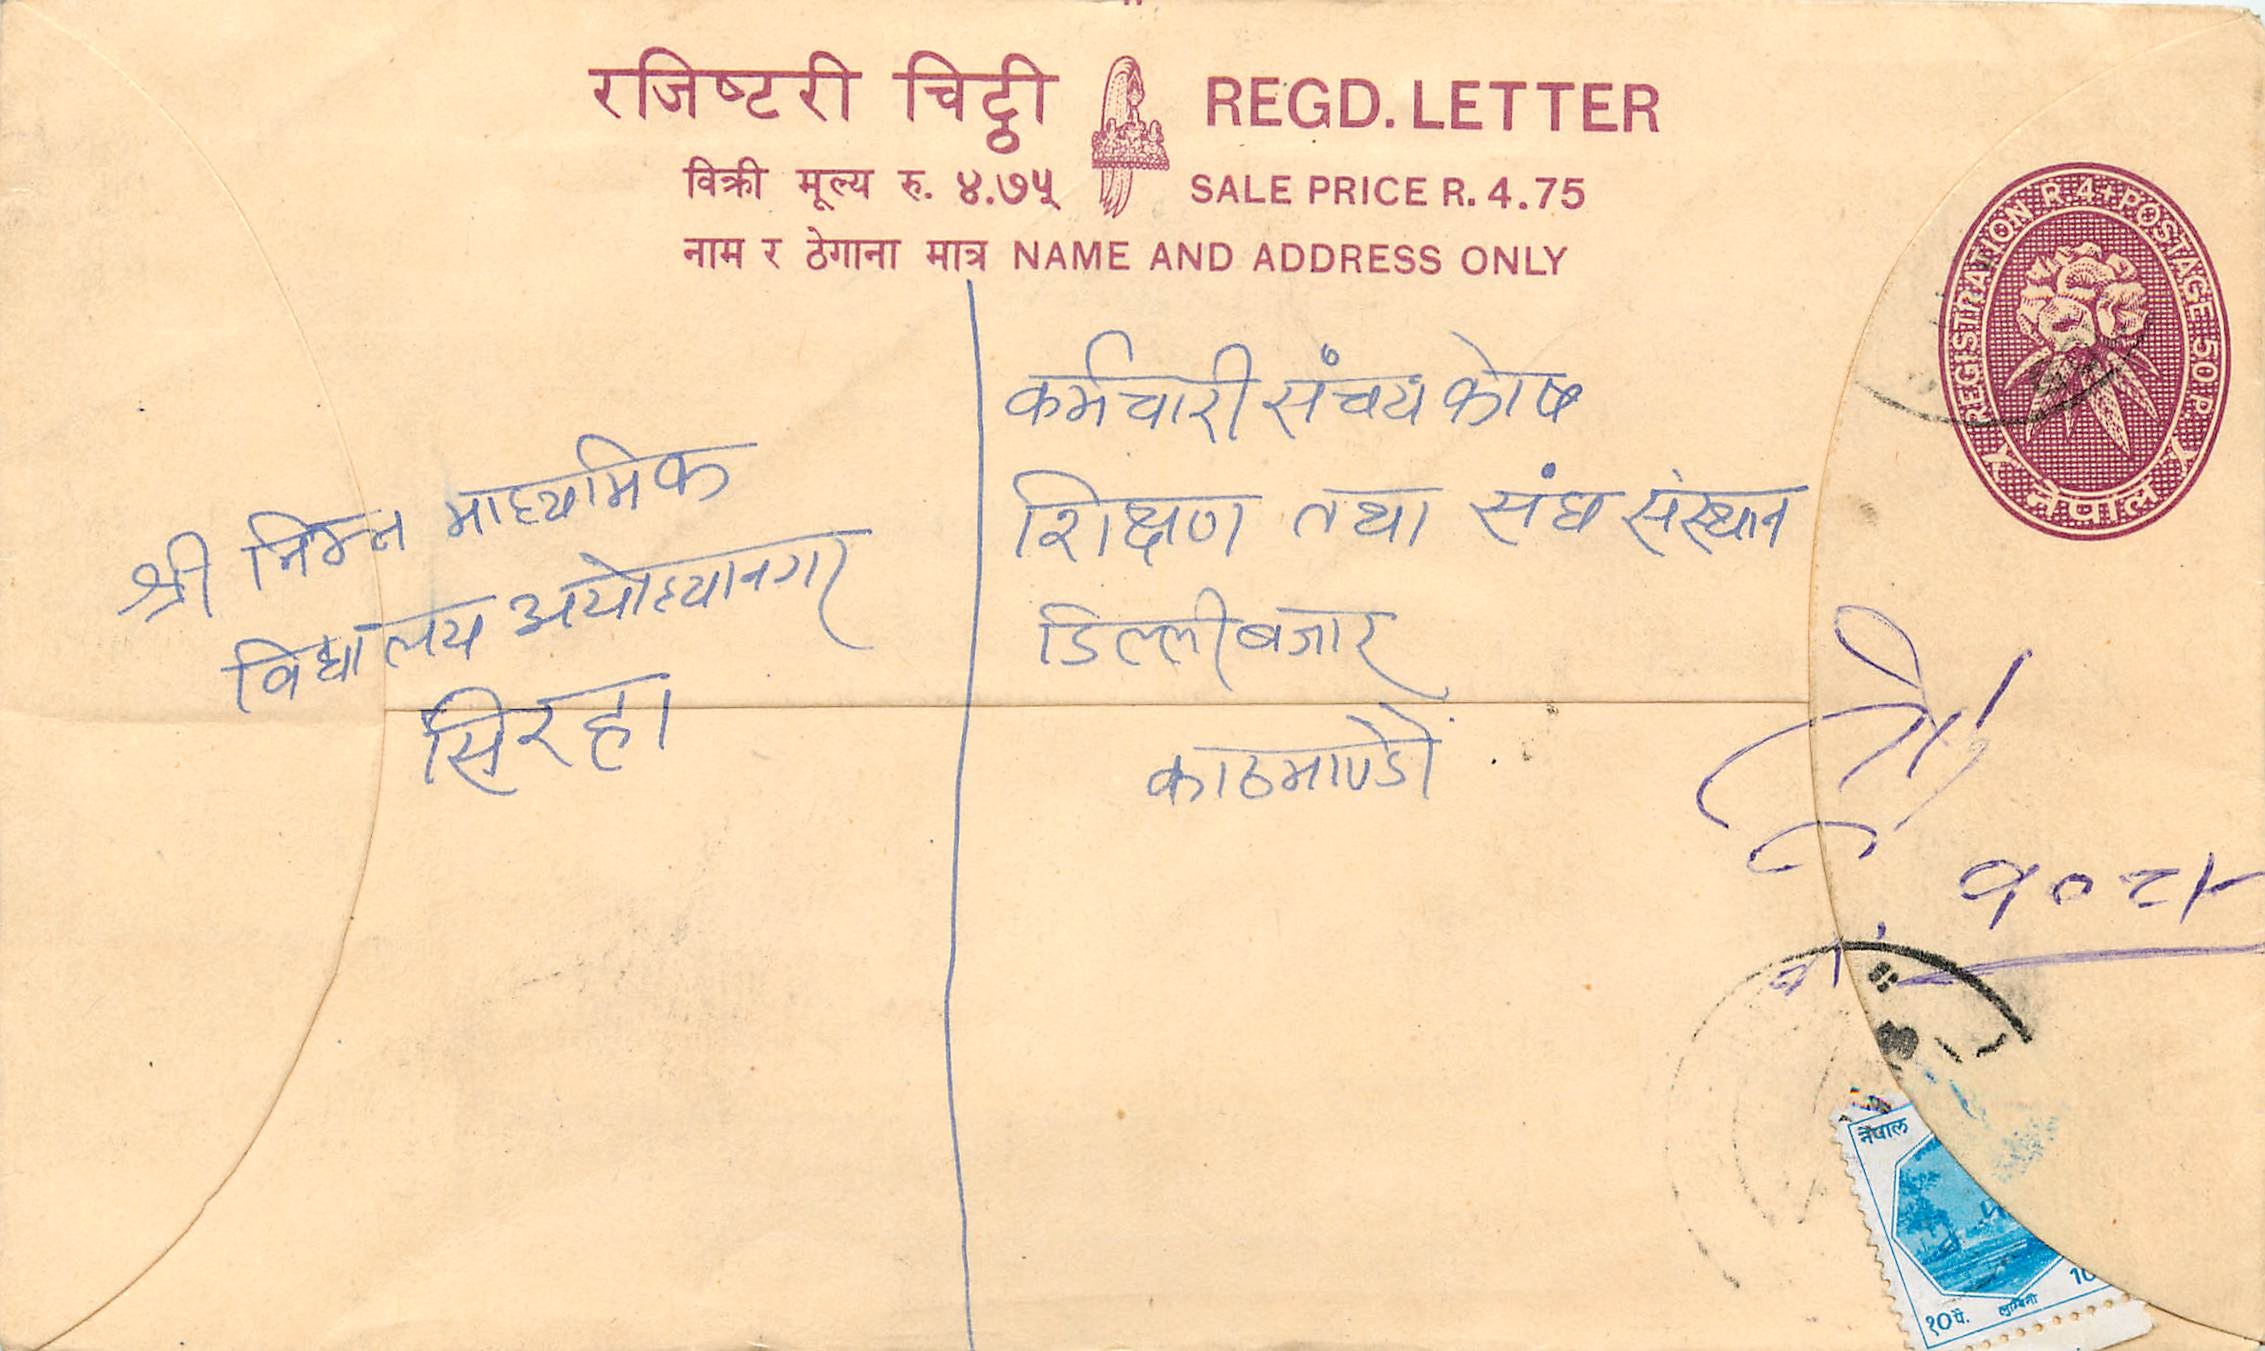 रजिष्टरी चिट्ठी REGD. LETTER
विक्री मूल्य रु. ४.७५ SALE PRICE R. 4.75
नाम र ठेगाना मात्र NAME AND ADDRESS ONLY
REGISTRATION R. 4 + POSTAGE 50 P.
नेपाल
श्री निम्न माध्यमिक
विद्यालय अयोध्यानगर
सिरहा
कर्मचारी संचय कोष
शिक्षण तथा संघ संस्थान
डिल्लीबजार
काठमाण्डौं
नेपाल
१०पै. लुम्बिनी 10